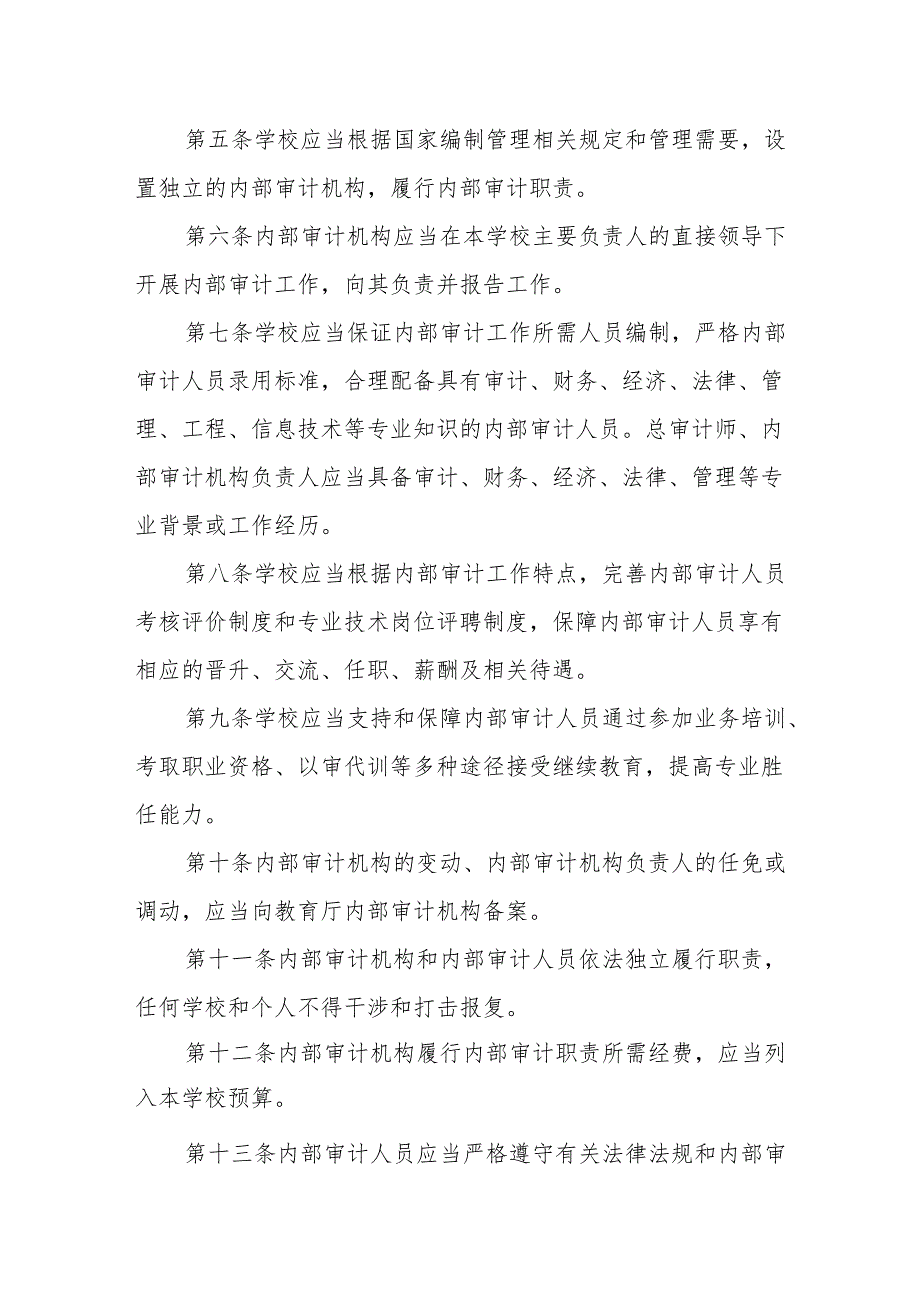 第五条学校应当根据国家编制管理相关规定和管理需要，设
置独立的内部审计机构，履行内部审计职责。
第六条内部审计机构应当在本学校主要负责人的直接领导下
开展内部审计工作，向其负责并报告工作。
第七条学校应当保证内部审计工作所需人员编制，严格内部
审计人员录用标准，合理配备具有审计、财务、经济、法律、管
理、工程、信息技术等专业知识的内部审计人员。总审计师、内
部审计机构负责人应当具备审计、财务、经济、法律、管理等专
业背景或工作经历。
第八条学校应当根据内部审计工作特点，完善内部审计人员
考核评价制度和专业技术岗位评聘制度，保障内部审计人员享有
相应的晋升、交流、任职、薪酬及相关待遇。
第九条学校应当支持和保障内部审计人员通过参加业务培训、
考取职业资格、以审代训等多种途径接受继续教育，提高专业胜
任能力。
第十条内部审计机构的变动、内部审计机构负责人的任免或
调动，应当向教育厅内部审计机构备案。
第十一条内部审计机构和内部审计人员依法独立履行职责，
任何学校和个人不得干涉和打击报复。
第十二条内部审计机构履行内部审计职责所需经费，应当列
入本学校预算。
第十三条内部审计人员应当严格遵守有关法律法规和内部审